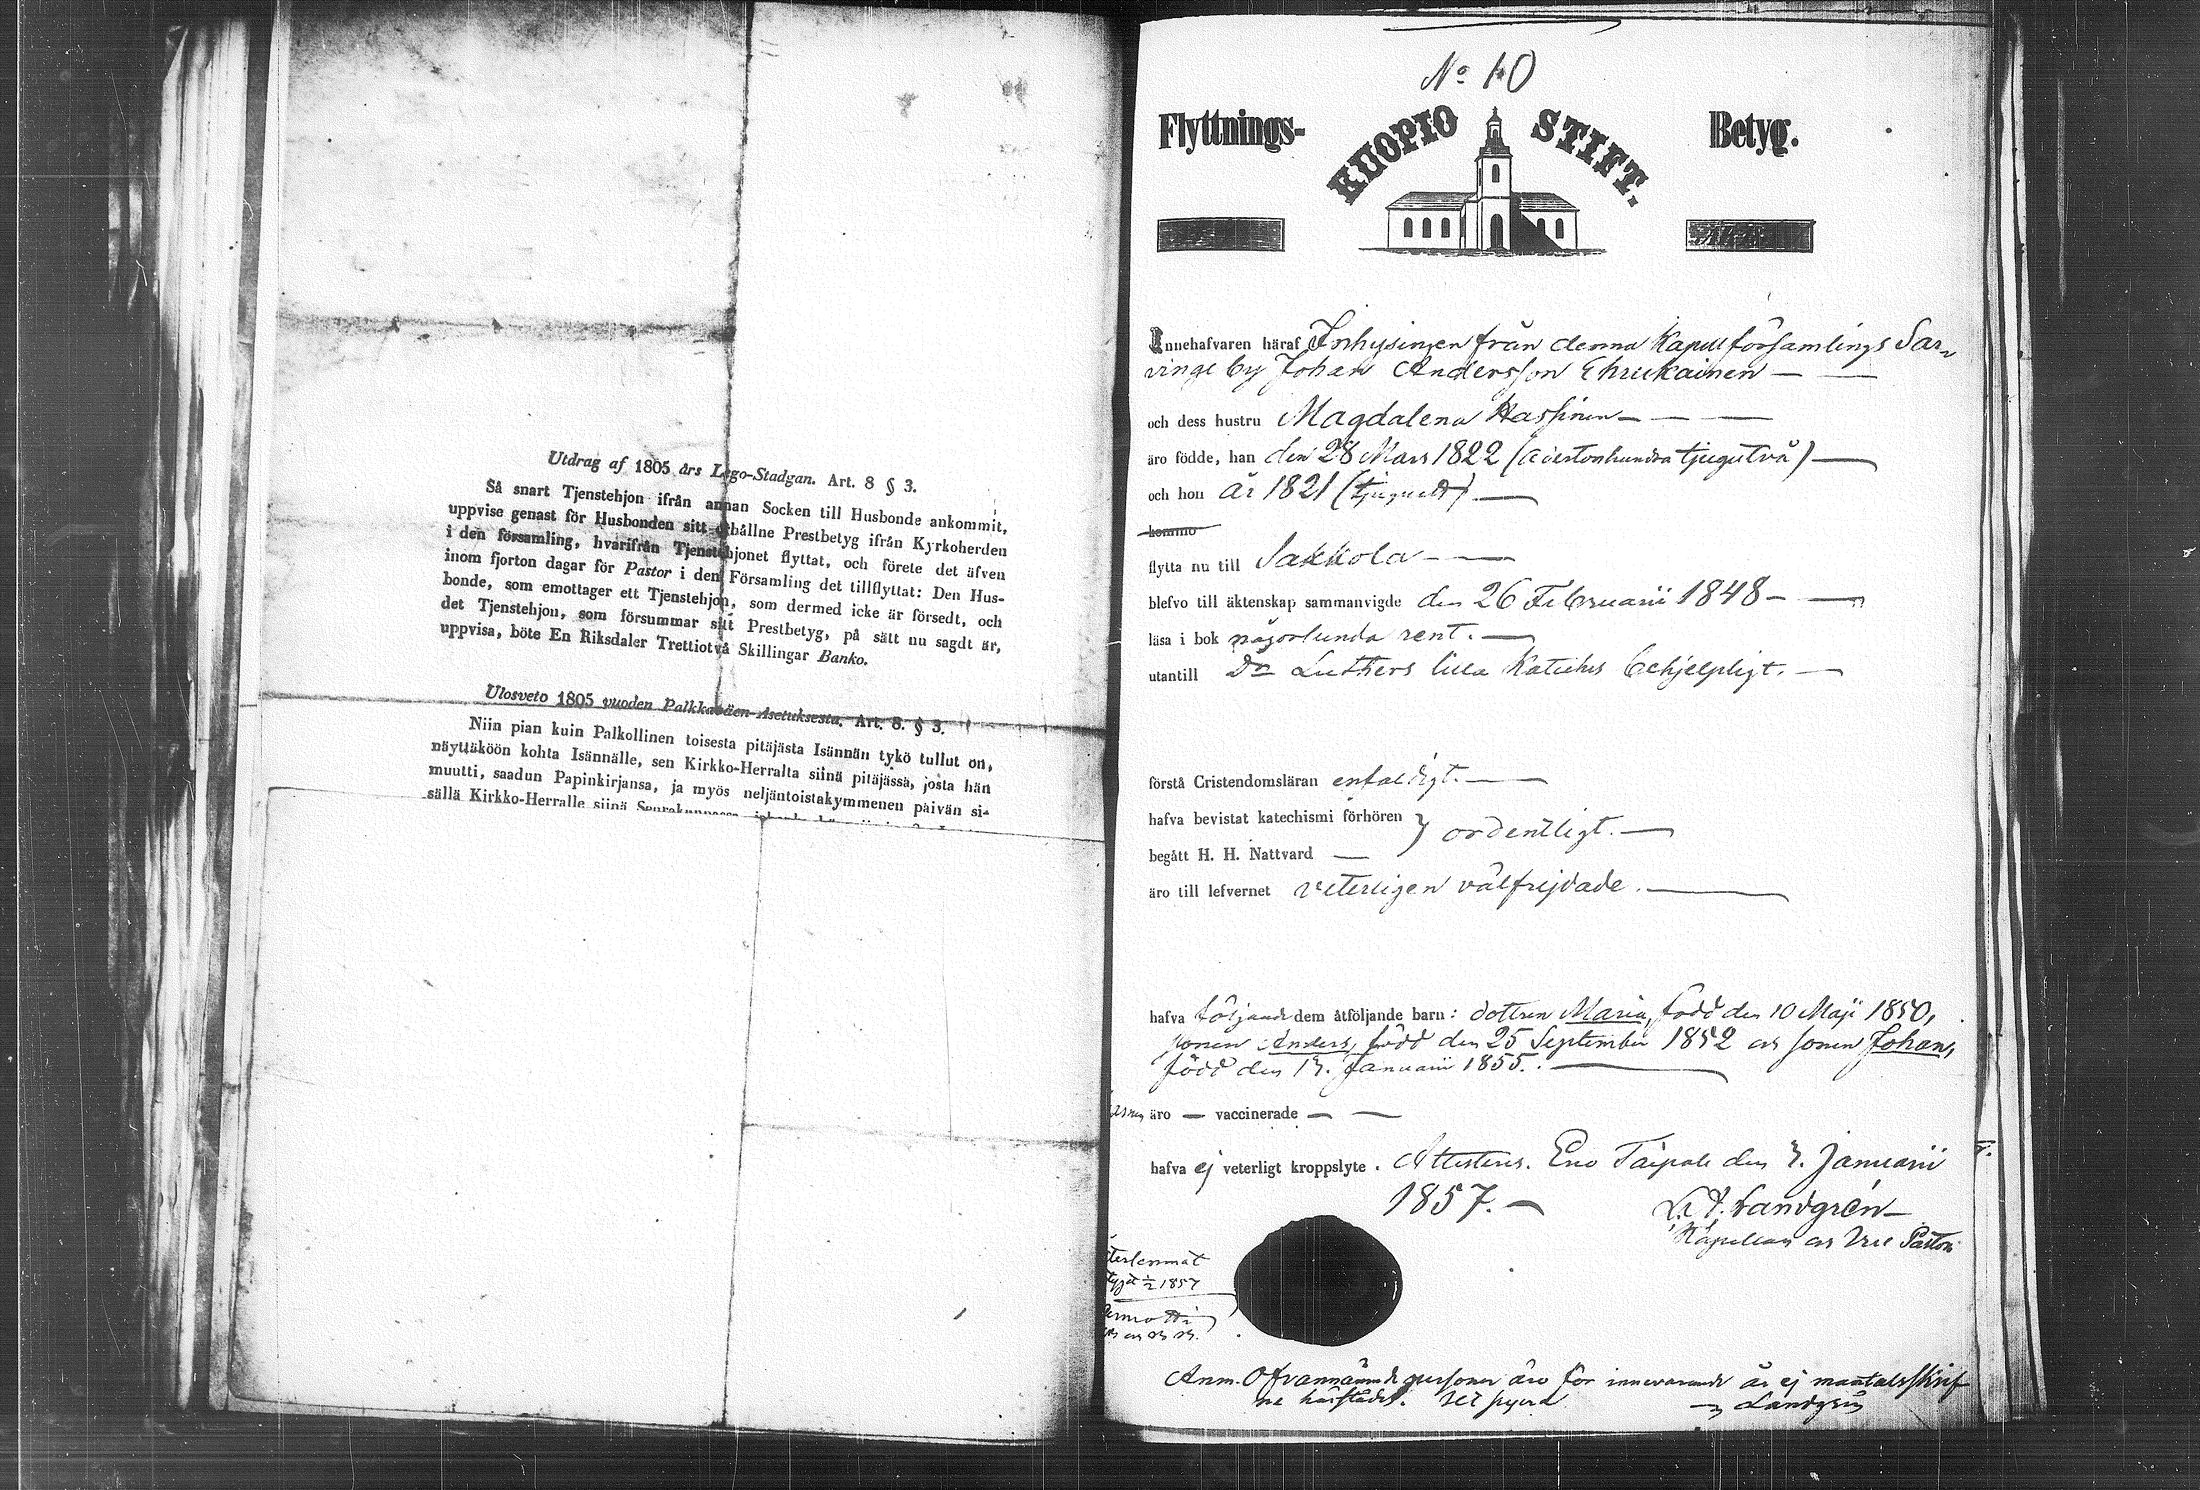 Utdrag af 1805 års Lego-Stadgan. Art. 8 § 3.
Så snart Tjenstehjon ifrån annan Socken till Husbonde ankommit,
uppvise genast för Husbonden sitt erhållne Prestbetyg ifrån Kyrkoherden
i den församling, hvarifrån Tjenstehjonet flyttat, och förete det äfven
inom fjorton dagar för Pastor i den Församling det tillflyttat: Den Hus-
bonde, som emottager ett Tjenstehjon, som dermed icke är försedt, och
det Tjenstehjon, som försummar sitt Prestbetyg, på sätt nu sagdt är,
uppvisa, böte En Riksdaler Trettiotvå Skillingar Banko.
Ulosveto 1805 vuoden Palkkaväen-Asetuksesta. Art. 8. § 3.
Niin pian kuin Palkollinen toisesta pitäjästa Isännän tykö tullut on,
näyttäköön kohta Isännälle, sen Kirkko-Herralta siinä pitäjässä, josta hän
muutti, saadun Papinkirjansa, ja myös neljäntoistakymmenen päivän si-
sällä Kirkko-Herralle siinä Seurakunnassa
No 10
Flyttnings- KUOPIO STIFT. Betyg.
Innehafvaren häraf Inhysingen från denna Kapellförsamlings Sar-
vinge by Johan Andersson Ehrukainen
och dess hustru Magdalena Hassinen
äro födde, han den 28 Mars 1822 (adertonhundra tjugutvå)
och hon år 1821 (tjuguett)
kommo
flytta nu till Sakkola
blefvo till äktenskap sammanvigde den 26 Februarii 1848
läsa i bok någorlunda rent.
utantill Dr Luthers lilla Kateches behjelpligt.
förstå Cristendomsläran enfaldigt.
hafva bevistat katechismi förhören } ordentligt.
begått H. H. Nattvard
äro till lefvernet veterligen välfrejdade.
hafva följande dem åtföljande barn: dottren Maria, född den 10 Maji 1850,
sonen Anders, född den 25 September 1852 och sonen Johan,
född den 13. Januarii 1855.
äro vaccinerade
hafva ej veterligt kroppslyte. Attesteras. Eno Taipale den 7. Januarii
1857.
Landgrén
Kapellan och Vice Pastor
1/2 1857
Anm. Ofvannämnde personer äro för innevarande år ej mantalsskrif
ne härstädes.
Landgrén